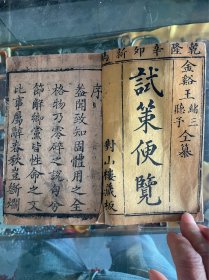 乾隆辛卯新
金谿王緒三
勝子仝纂
試策便覽
對山樓藏板
序
蓋聞致知固體用之全
格物乃零碎之
節解
皆性命之文
比事屬辭春秋豈斷爛